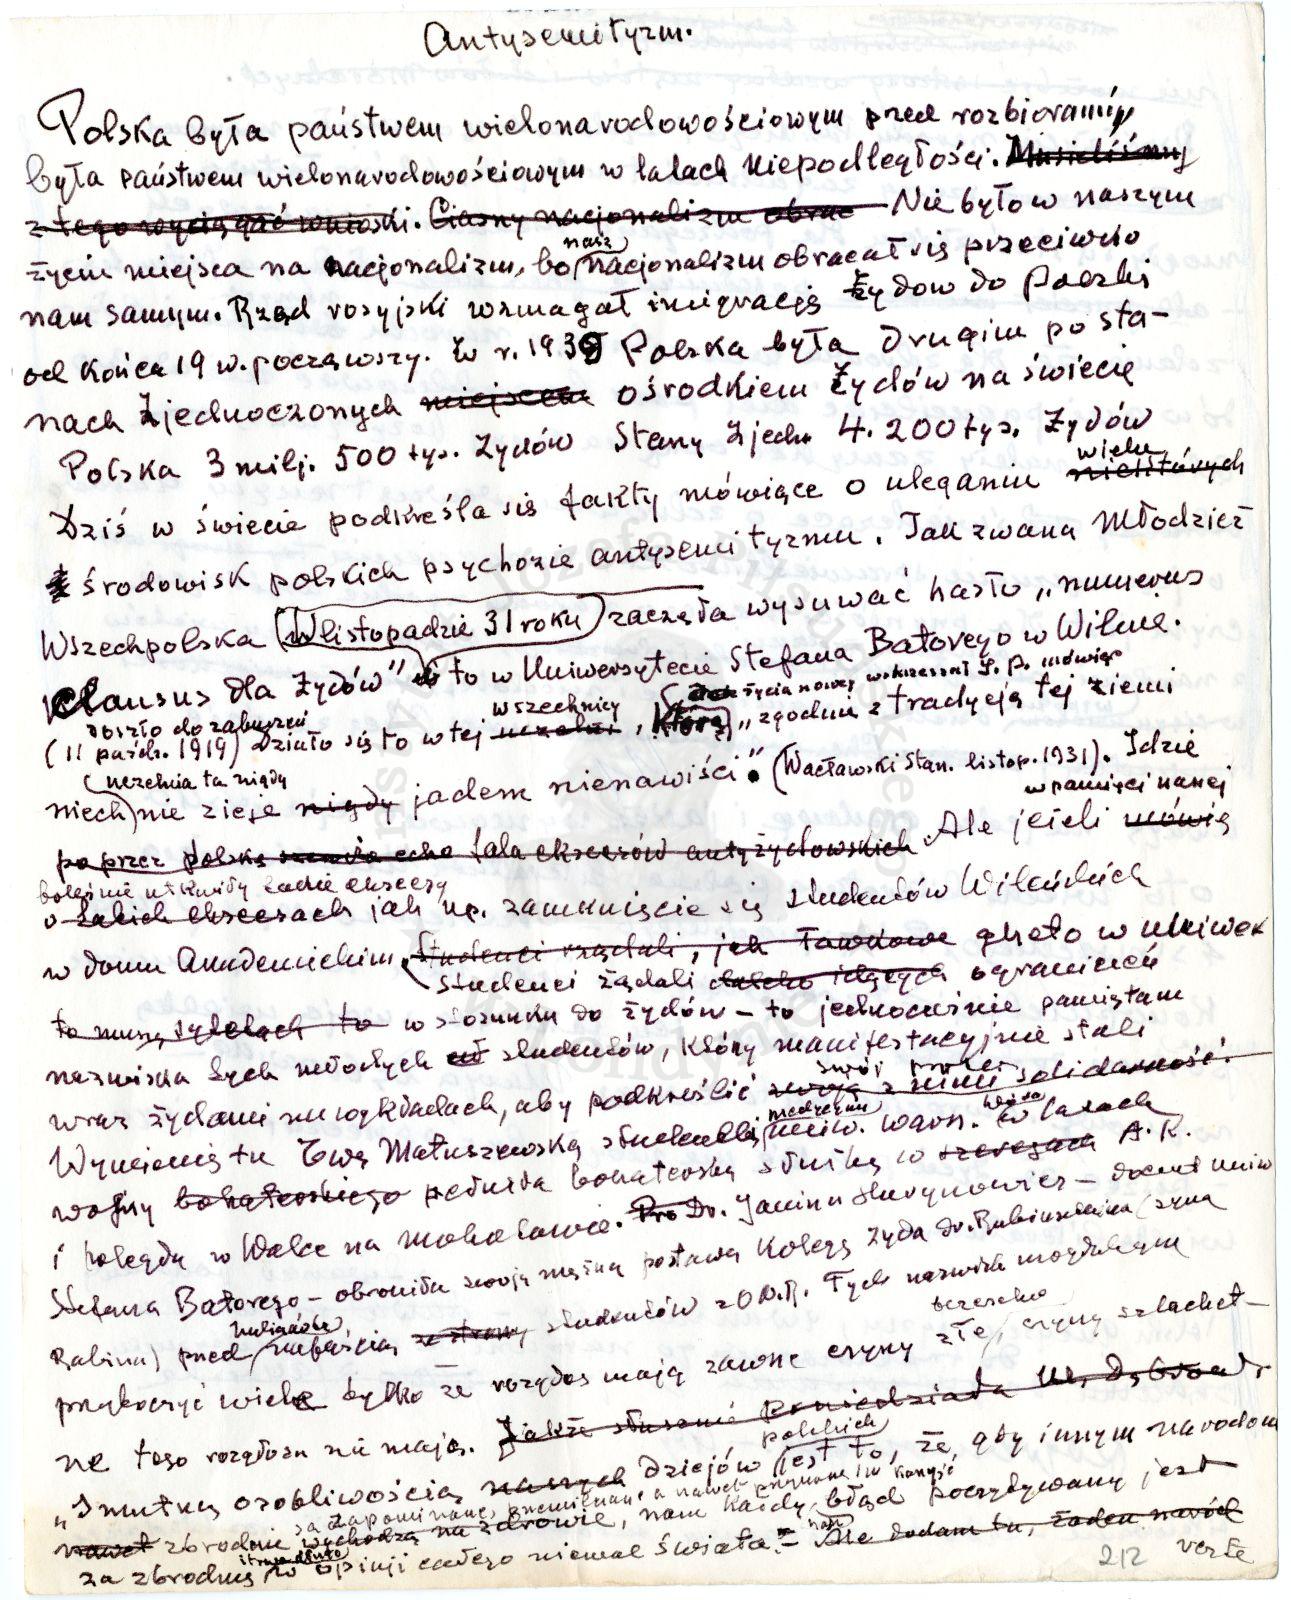 Antysemityzm.
Polska była państwem wielonarodowościowym przed rozbiorami,
była państwem wielonarodowościowym w latach Niepodległości. Musieliśmy
z tego wyciągać wnioski. Ciasny nacjonalizm obrac Nie było w naszym
życiu miejsca na nacjonalizm, bo nasz nacjonalizm obracał się przeciwko
nam samym. Rząd rosyjski wzmagał imigrację Żydów do Polski
od końca 19 w. począwszy. W r. 1939 Polska była drugim po Sta-
nach Zjednoczonych miejscem ośrodkiem Żydów na świecie
Polska 3 milj. 500 tys. Żydów Stany Zjedn. 4.200 tys. Żydów
Dziś w świecie podkreśla się fakty mówiące o uleganiu wielu
środowisk polskich psychozie antysemityzmu. Tak zwana Młodzież
Wszechpolska w listopadzie 31 roku zaczęła wysuwać hasło „numerus
clausus dla Żydów" to w Uniwersytecie Stefana Batorego w Wilnie.
doszło do zaburzeń
wszechnicy
życia nowej wskrzesał J. P. mówiąc
(11 paźdz. 1919) Działo się to w tej uczelni, którą „zgodnie z tradycją tej ziemi
uczelnia ta nigdy
niech nie zieje nigdy jadem nienawiści". (Wacławski Stan. listop. 1931). Idzie
w pamięci naszej
poprzez polskę fala ekscesów antyżydowskich. Ale jeżeli mówię
boleśnie utkwiły takie ekscesy
o takich ekscesach jak np. zamknięcie się studentów Wileńskich
w domu Akademickim. Studenci żądali, jak ławkowe gheto w uniwer
Studenci żądali daleko idących ograniczeń
sytetach to w stosunku do żydów – to jednocześnie pamiętam
nazwiska tych młodych studentów, którzy manifestacyjnie stali
wraz żydami na wykładach, aby podkreślić swoją z nimi solidarność.
swój
medycyny
Wymienię tu Ewę Matuszewską studentkę uniw. warsz. w latach
wojny bohaterskiego pełniła bohaterską służbę w szeregach A.K.
i poległa w Walce na Mokotowie. Pro Dr. Janina Hurynowicz – docent Uniw
Stefana Batorego – obroniła swoją mężną postawą kolegę Żyda dr. Rubinsteina (syna
Rabina) przed napaścią ze strony studentów z O.N.R. Tych nazwisk mógłbym
huliganów
przytoczyć wiele tylko że rozgłos mają zawsze czyny złe, czyny szlachet-
bezecne
ne tego rozgłosu nie mają. Jakże słusznie powiedziała M. Dąbrowska
„Smutną osobliwością naszych dziejów jest to, że, gdy innym narodom
polskich
są zapominane, przemilczane, a nawet
nawet zbrodnie wychodzą na zdrowie, nam każdy błąd poczytywany jest
za zbrodnię w opinji całego niemal świata." – Ale dodam tu, żaden naród
212
verte